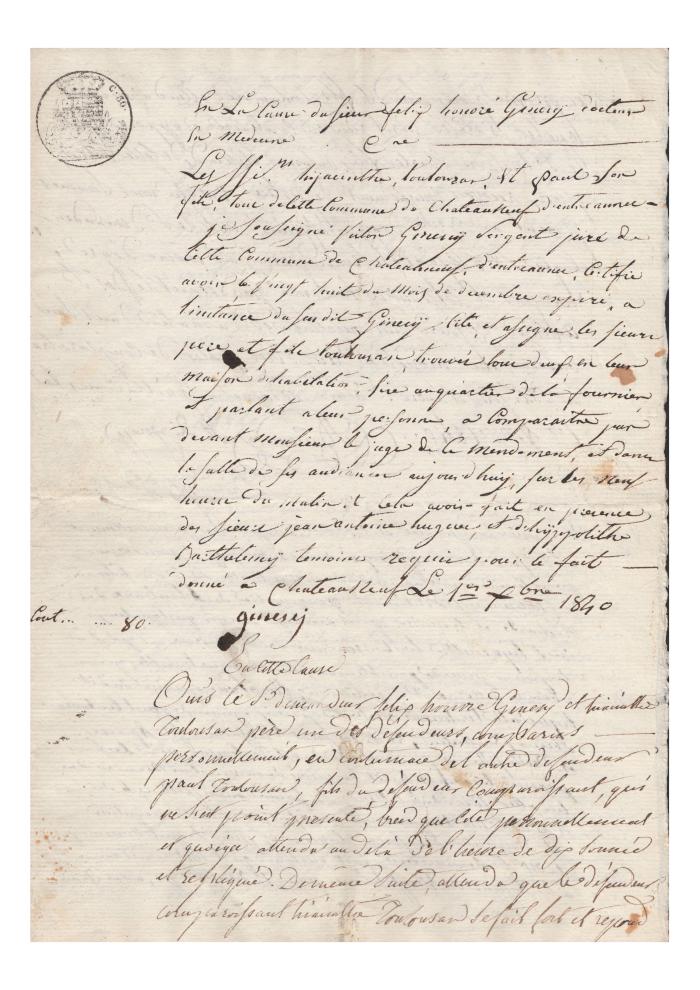 En La Cause du sieur felix honoré Ginesy docteur
En medecine C ne
Les ssrs hyacinthe, toulousan, Et paul son
fils, tous de Cette Commune de Chateauneuf d'entraunes
je soussigné Victor Ginesy Sergent juré de
Cette Commune de Chateauneuf, d'entraunes, Certifie
avoir le vingt huit du mois de decembre expiré, a
l'instance du susdit Ginesy cité, et assigné les sieurs
pere et fils toulousan, trouvés tous deux en leur
maison d'habitation, sise au quartier de la fourniere
Et parlant a leur personne, a Comparaitre par
devant monsieur le juge de Ce mendement, et dans
la salle de ses audiances aujourd'huy, sur les neuf
heures du matin, Et Cela avois fait en presence
des sieurs jean antoine hugues, et d'hyppolithe
Barthelemy temoins requis pour le fait
donné a Chateauneuf Le 1er 1840
Cout ... .... 80.
ginesy
En cette Cause
Ouis le Sr demandeur felix honoré Ginesy et hiacinthe
Toulousan père un des défendeurs, comparus
personnellement, en contumace de l'autre defendeur
paul Toulousan, fils du défendeur Comparoissant, qui
ne s'est point presenté, bien que Cité personnellement
et quoique attendu au delà de l'heure de dix sonnée
et repliqué. De meme suite, attendu que le défendeur
comparoissant hiacinthe Toulousan se fait fort et repond